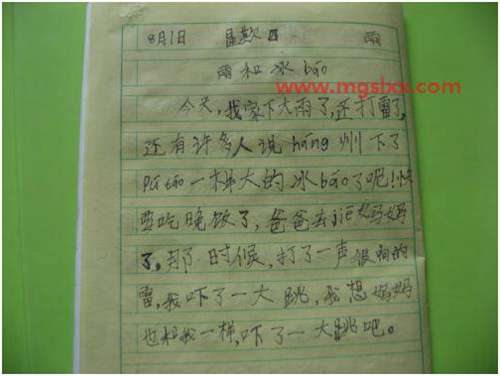 8月1日 星期日 雨
雨和冰báo
www.mgsbox.com
今天,我家下大雨了,还打雷了,
还有许多人说háng州下了
Pú táo一样大的冰báo了呢!快
要吃晚饭了,爸爸去jiē妈妈
了,那时候,打了一声很响的
雷,我吓了一大跳,我想妈妈
也和我一样,吓了一大跳吧。